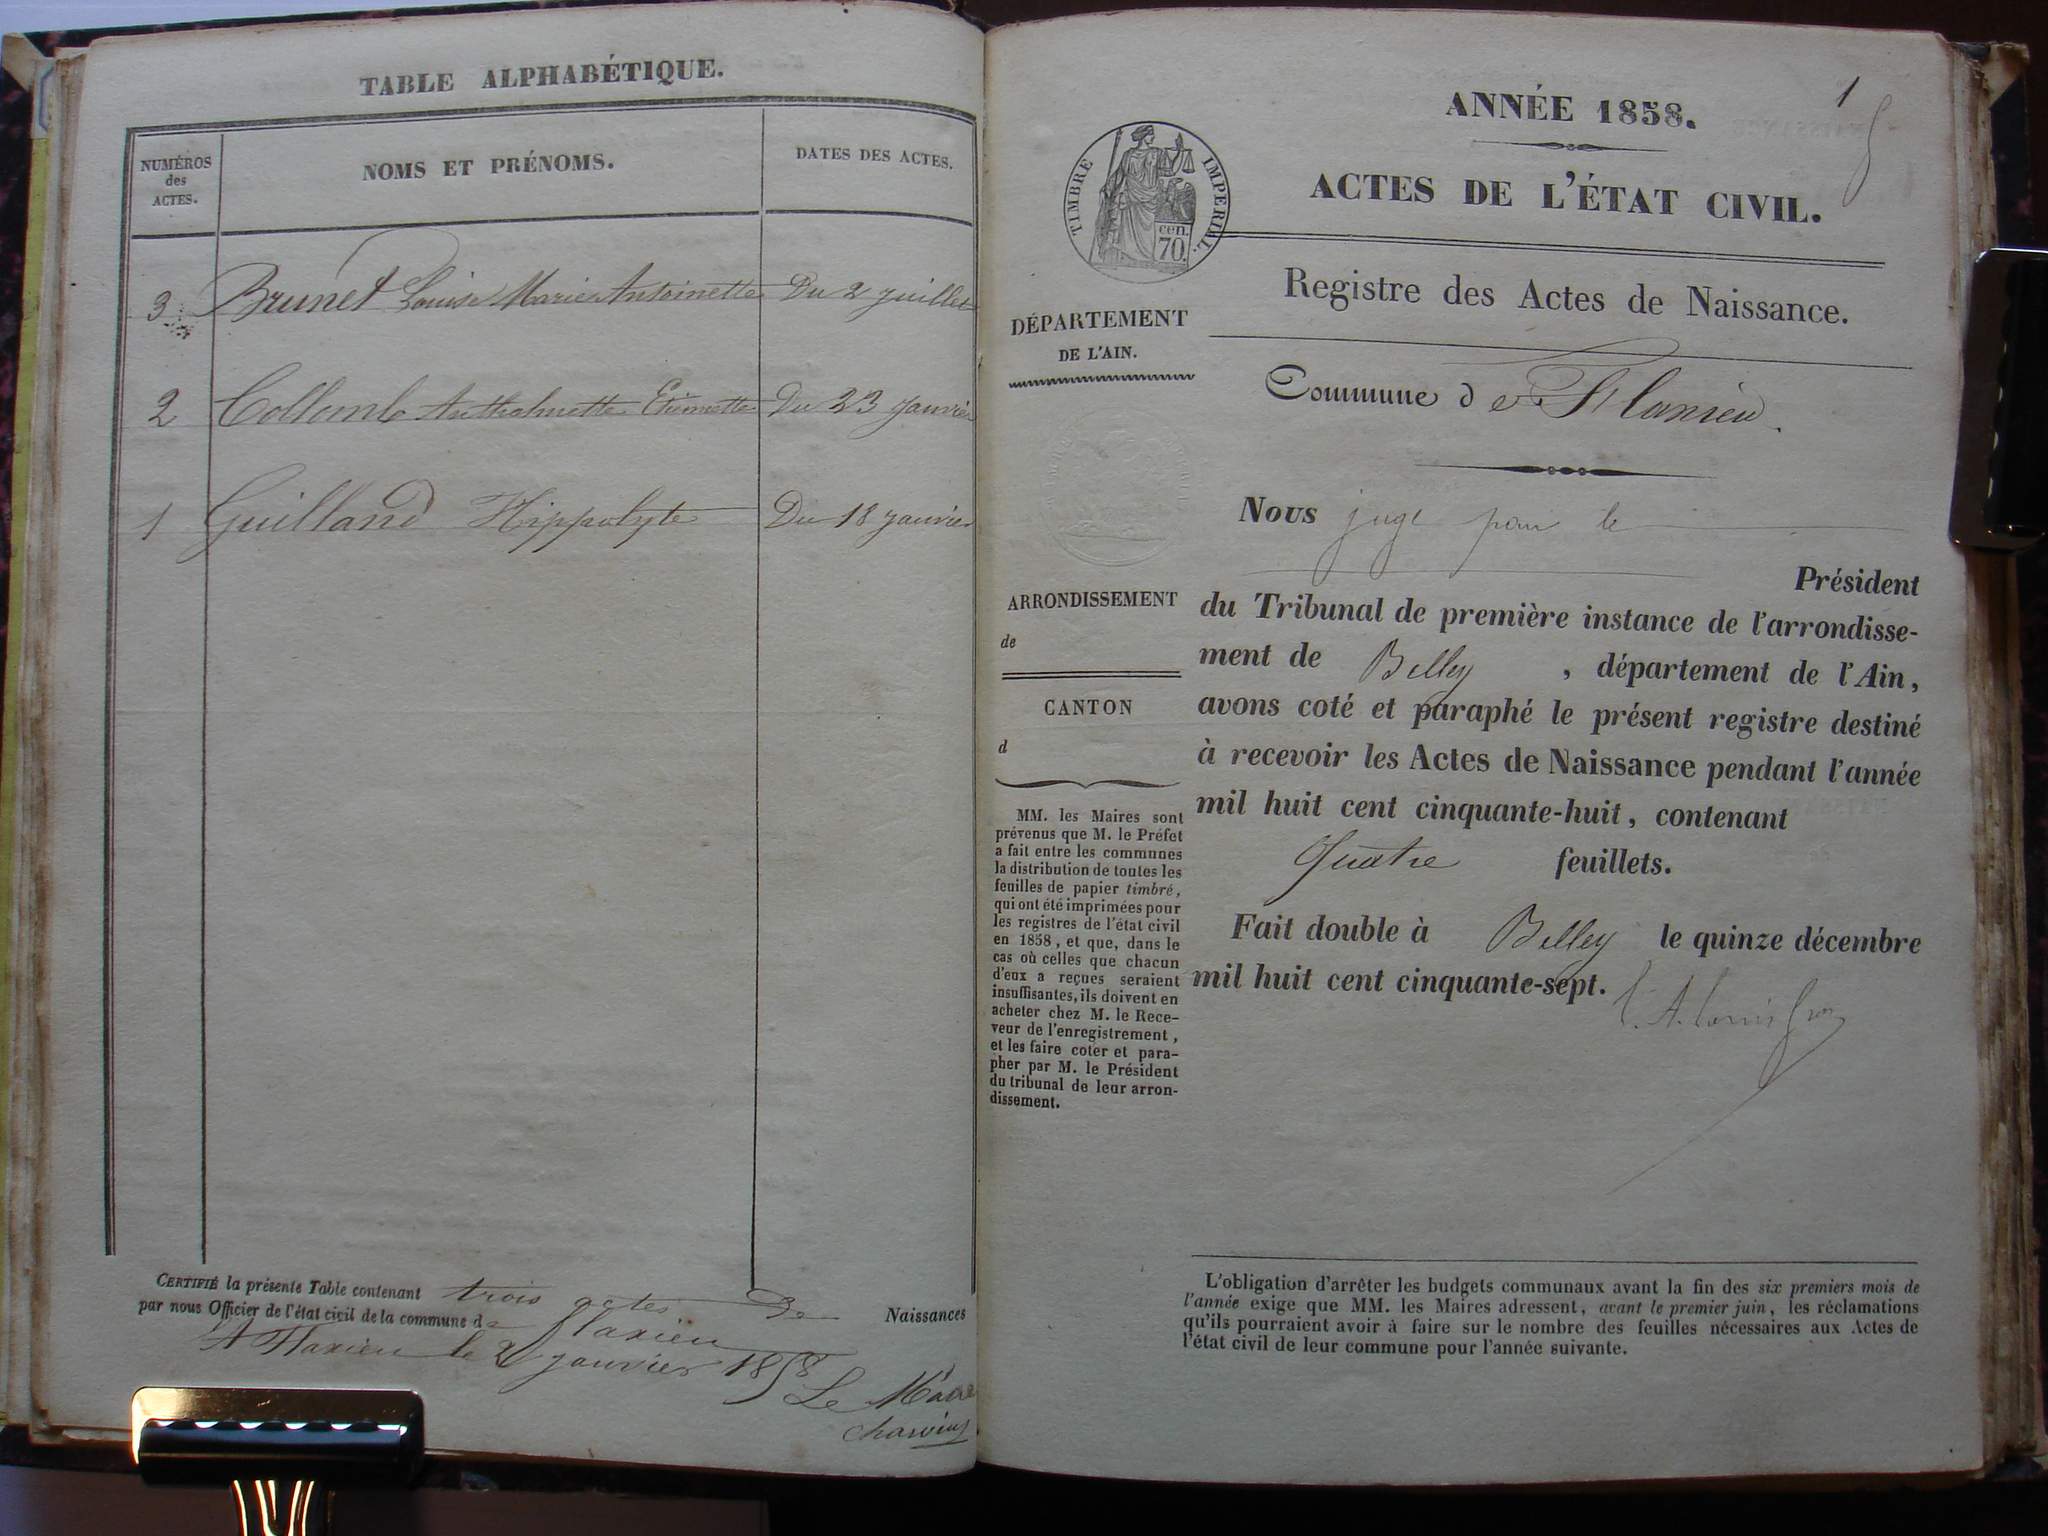 TABLE ALPHABÉTIQUE.
NUMÉROS
des
ACTES.
NOMS ET PRÉNOMS.
DATES DES ACTES.
3 Brunet Louise Marie Antoinette Du 2 juillet
2 Collomb Anthelmette Etiennette Du 23 janvier
1 Guilland Hippolyte Du 18 janvier
CERTIFIÉ la présente Table contenant trois actes De Naissances
par nous Officier de l'état civil de la commune de Flaxieu
A Flaxieu le 2 janvier 1858
Le Maire
Charvin
1
ANNÉE 1858.
ACTES DE L'ÉTAT CIVIL.
TIMBRE IMPERIAL.
cen.
70.
Registre des Actes de Naissance.
DÉPARTEMENT
DE L'AIN.
Commune de Flaxieu
Nous juge pour le
Président
du Tribunal de première instance de l'arrondisse-
ment de Belley , département de l'Ain,
avons coté et paraphé le présent registre destiné
à recevoir les Actes de Naissance pendant l'année
mil huit cent cinquante-huit, contenant
Quatre feuillets.
Fait double à Belley le quinze décembre
mil huit cent cinquante-sept.
ARRONDISSEMENT
de
CANTON
d
MM. les Maires sont
prévenus que M. le Préfet
a fait entre les communes
la distribution de toutes les
feuilles de papier timbré,
qui ont été imprimées pour
les registres de l'état civil
en 1858, et que, dans le
cas où celles que chacun
d'eux a reçues seraient
insuffisantes, ils doivent en
acheter chez M. le Rece-
veur de l'enregistrement,
et les faire coter et para-
pher par M. le Président
du tribunal de leur arron-
dissement.
L'obligation d'arrêter les budgets communaux avant la fin des six premiers mois de
l'année exige que MM. les Maires adressent, avant le premier juin, les réclamations
qu'ils pourraient avoir à faire sur le nombre des feuilles nécessaires aux Actes de
l'état civil de leur commune pour l'année suivante.